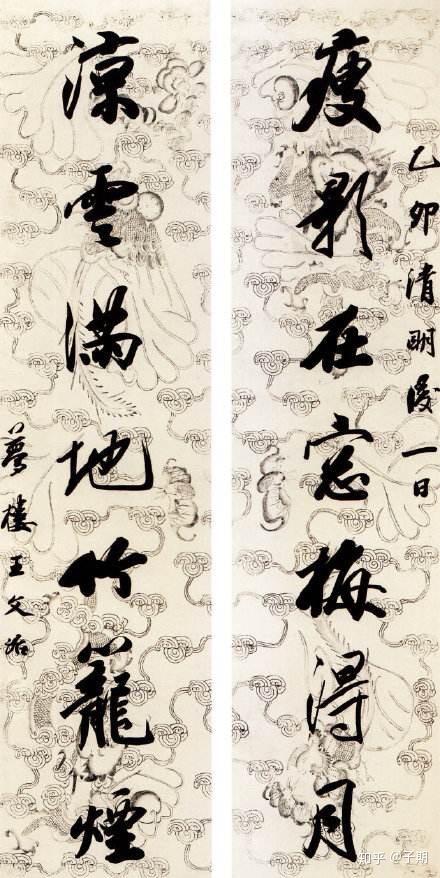 乙卯清明後一日
瘦影在窓梅得月
涼雲滿地竹籠煙
夢樓王文治
知乎 @子期